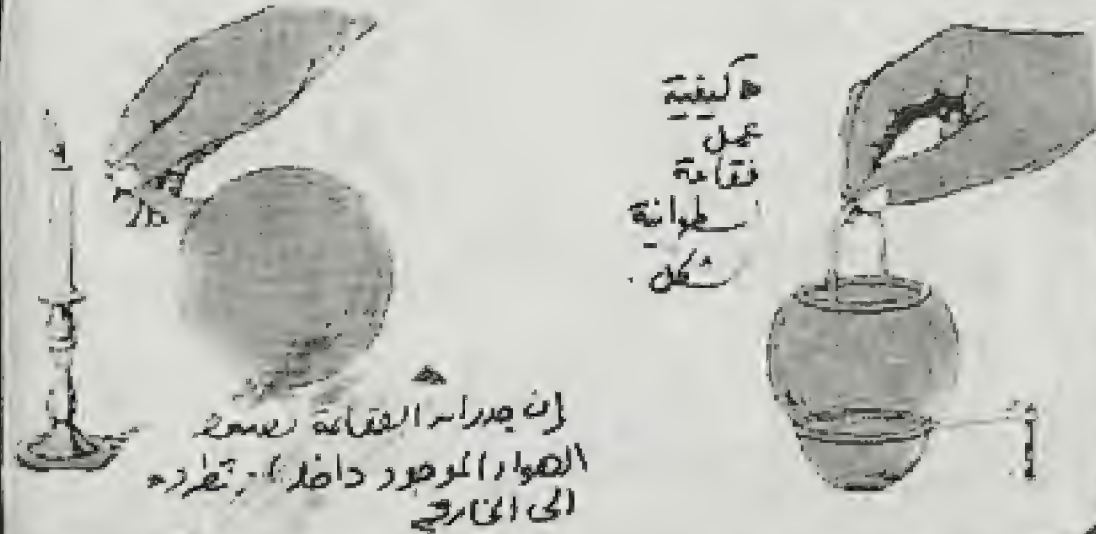 كيفية
عمل
فقاعة
اسطوانية
شكل.
إن جدران الفقاعة
الهواء الموجود داخلها تطرده
الى الخارج